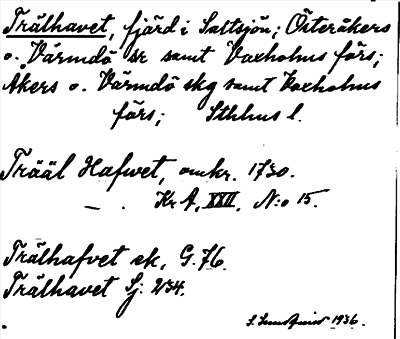 Trälhavet, fjärd i Saltsjön; Österåkers
o. Värmdö sr samt Vaxholms förs;
Åkers o. Värmdö skg samt Vaxholms
förs; Sthlms l.
Trääl Hafwet, omkr. 1730.
— . Kr A, XXII, N:o 15.
Trälhafvet ek, G. 76.
Trälhavet Sj: 234.
1936.